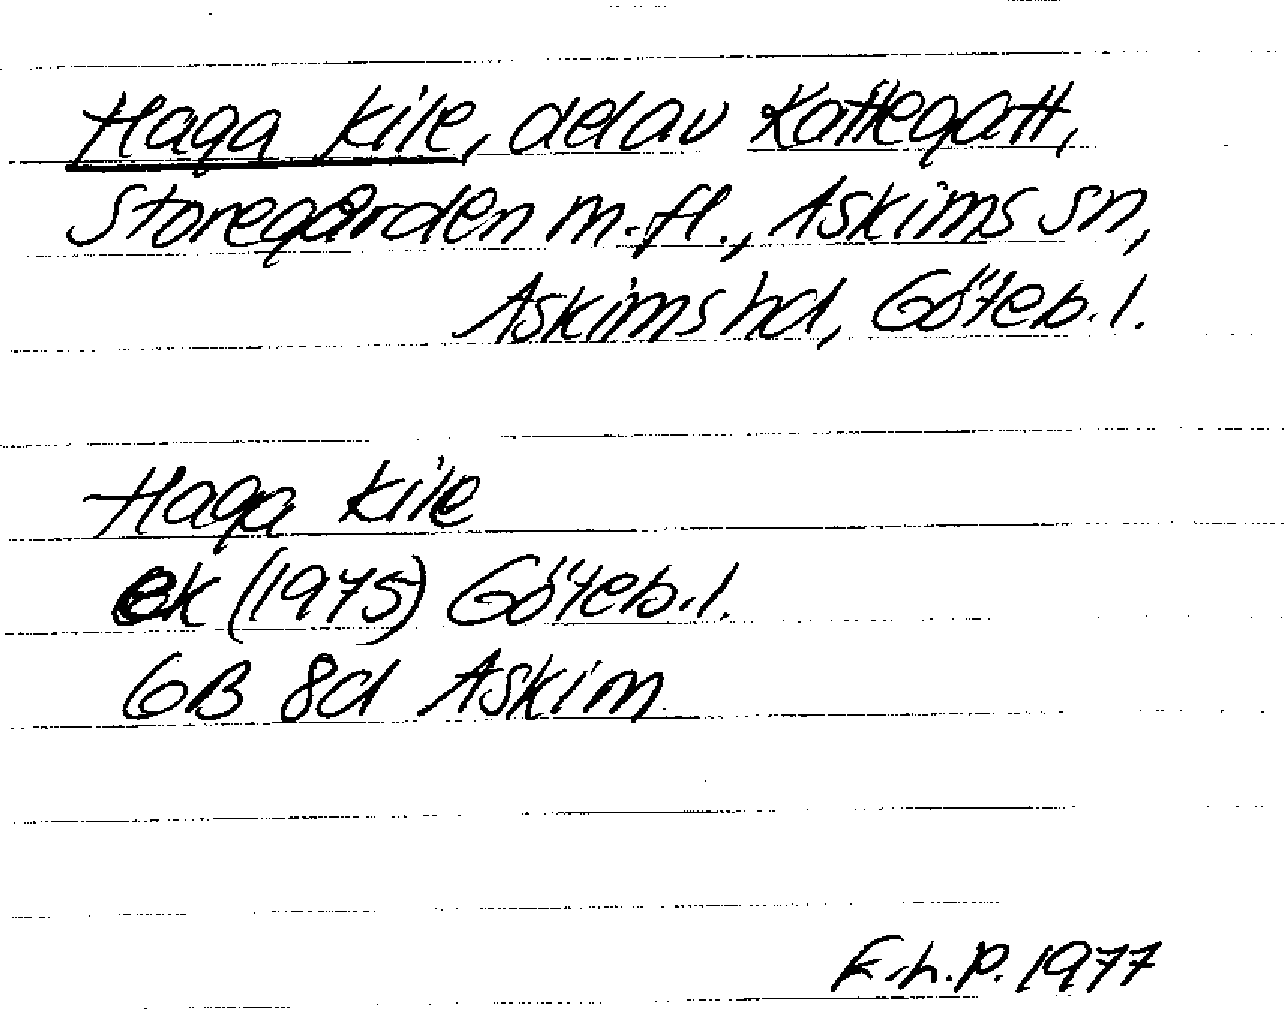 Haga kile, del av Kattegatt,
Storegården m.fl., Askims sn,
Askims hd, Göteb.l.
Haga kile
ek (1975) Göteb.l.
GB 8d Askim
E.h.p. 1977